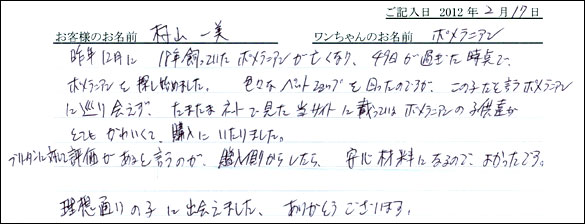 ご記入日 2012年2月17日
お客様のお名前 村山 一美 ワンちゃんのお名前 ポメラニアン
昨年12月に 18年飼っていた ポメラニアンが亡くなり、49日が過ぎた時点で、
ポメラニアンを探し始めました。 色々なペットショップを回ったのですが、この子だと言うポメラニアン
に巡り会えず、たまたまネットで見た当サイトに載っているポメラニアンの子供達が
とてもかわいくて、購入にいたりました。
ブリーダーに対して評価があると言うのが、購入側からしたら、安心材料になるので、よかったです。
理想通りの子に出会えました、ありがとうございます。